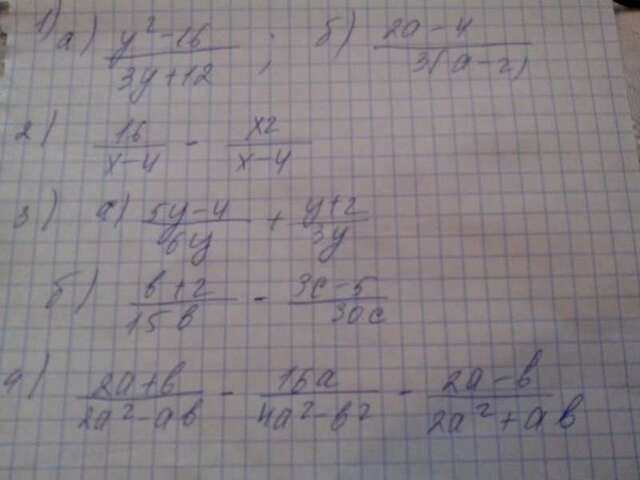 1) а) (y²-16)/(3y+12) ; б) (2a-4)/(3(a-2))
2) 16/(x-4) - x2/(x-4)
3) а) (5y-4)/(6y) + (y+2)/(3y)
б) (b+2)/(15b) - (3c-5)/(30c)
4) (2a+b)/(2a²-ab) - 16a/(4a²-b²) - (2a-b)/(2a²+ab)